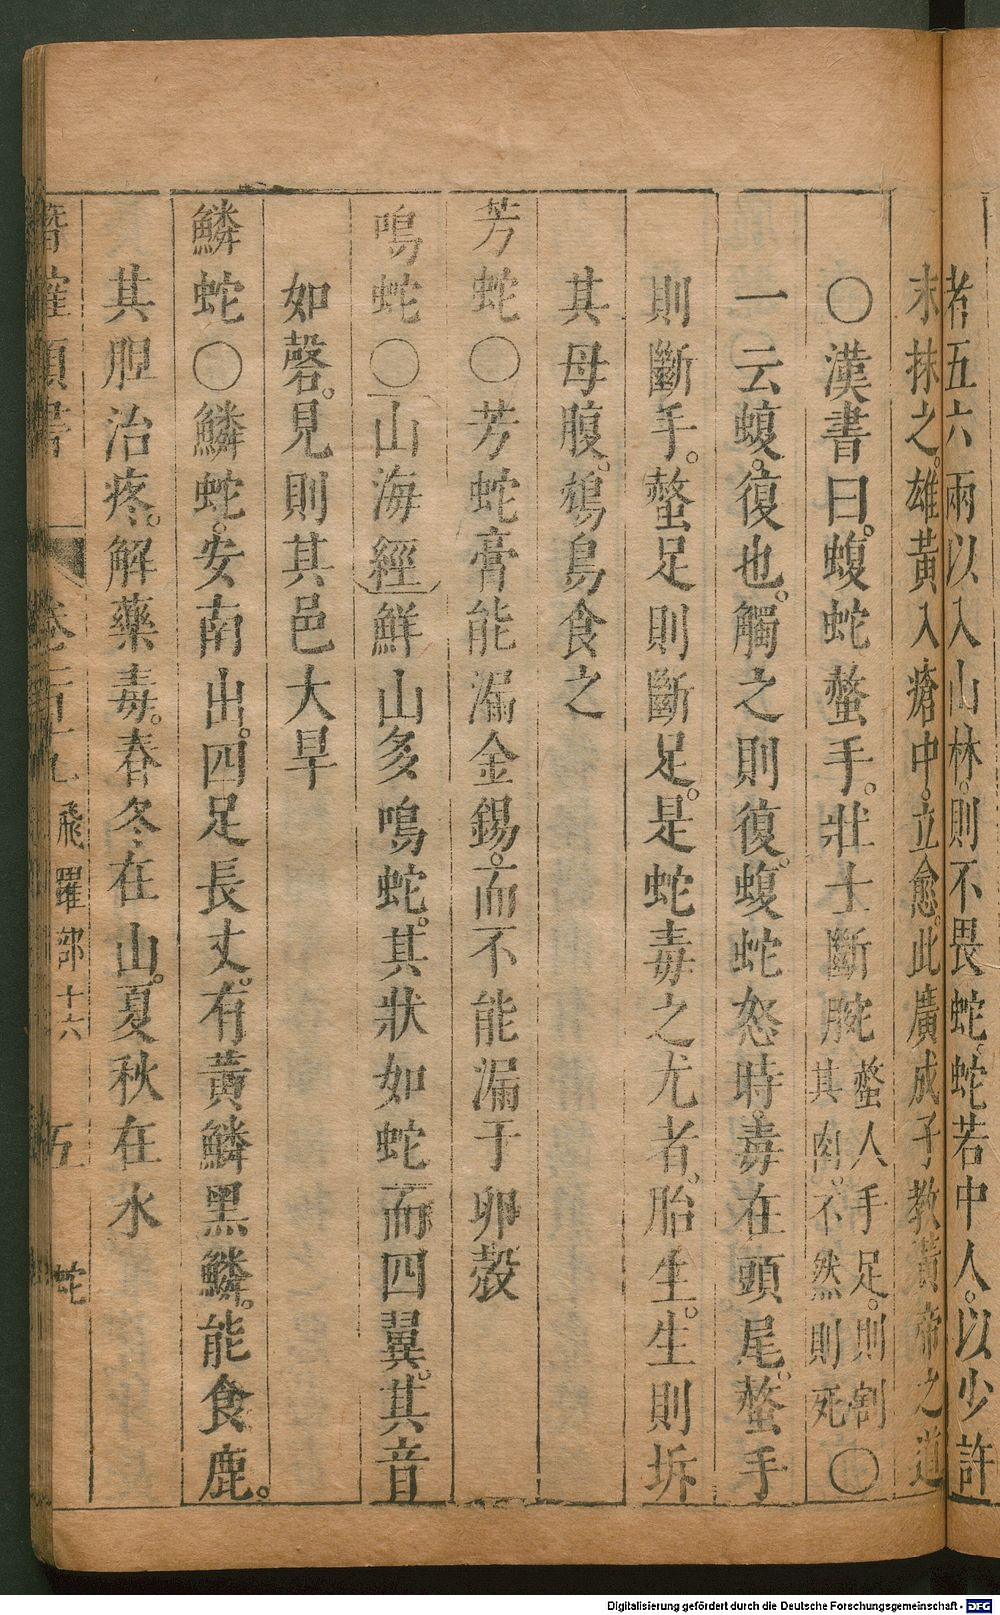 者五六兩以入山林。則不畏蛇。蛇若中人。以少許
末抹之。雄黃入瘡中。立愈。此廣成子教黃帝之道
○漢書曰。蝮蛇螫手。壯士斷腕螫人手足。則割其肉。不然則死○
一云蝮。復也。觸之則復。蝮蛇怒時。毒在頭尾。螫手
則斷手。螫足則斷足。是蛇毒之尤者。胎生。生則坼
其母腹。鴆鳥食之
芳蛇○芳蛇膏能漏金錫。而不能漏于卵殼
鳴蛇○山海經鮮山多鳴蛇。其狀如蛇而四翼。其音
如磬。見則其邑大旱
鱗蛇○鱗蛇。安南出。四足長丈。有黃鱗黑鱗。能食鹿。
其胆治疼。解藥毒。春冬在山。夏秋在水
潛確類書 卷一百十九 飛躍部十六 五 蛇
Digitalisierung gefördert durch die Deutsche Forschungsgemeinschaft - DFG